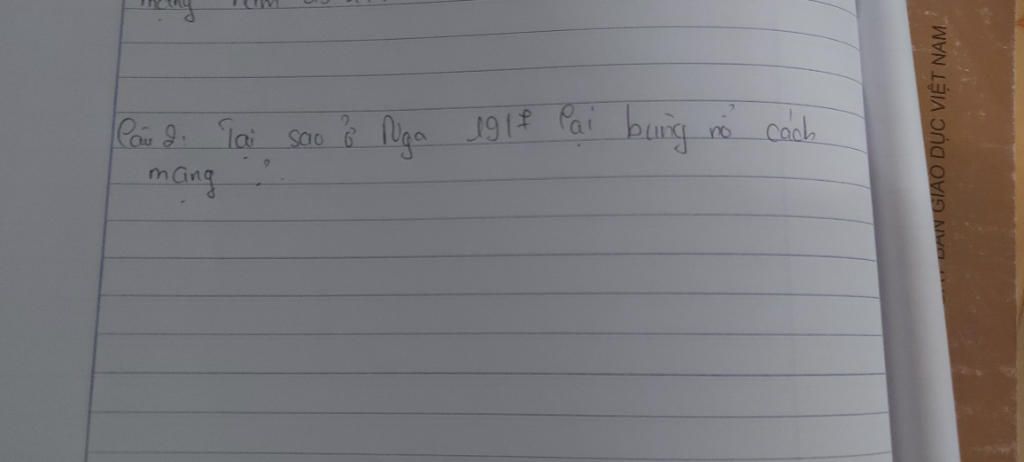 mạng
Câu 2: Tại sao ở Nga 1917 lại bùng nổ cách
mạng ?
GIÁO DỤC VIỆT NAM